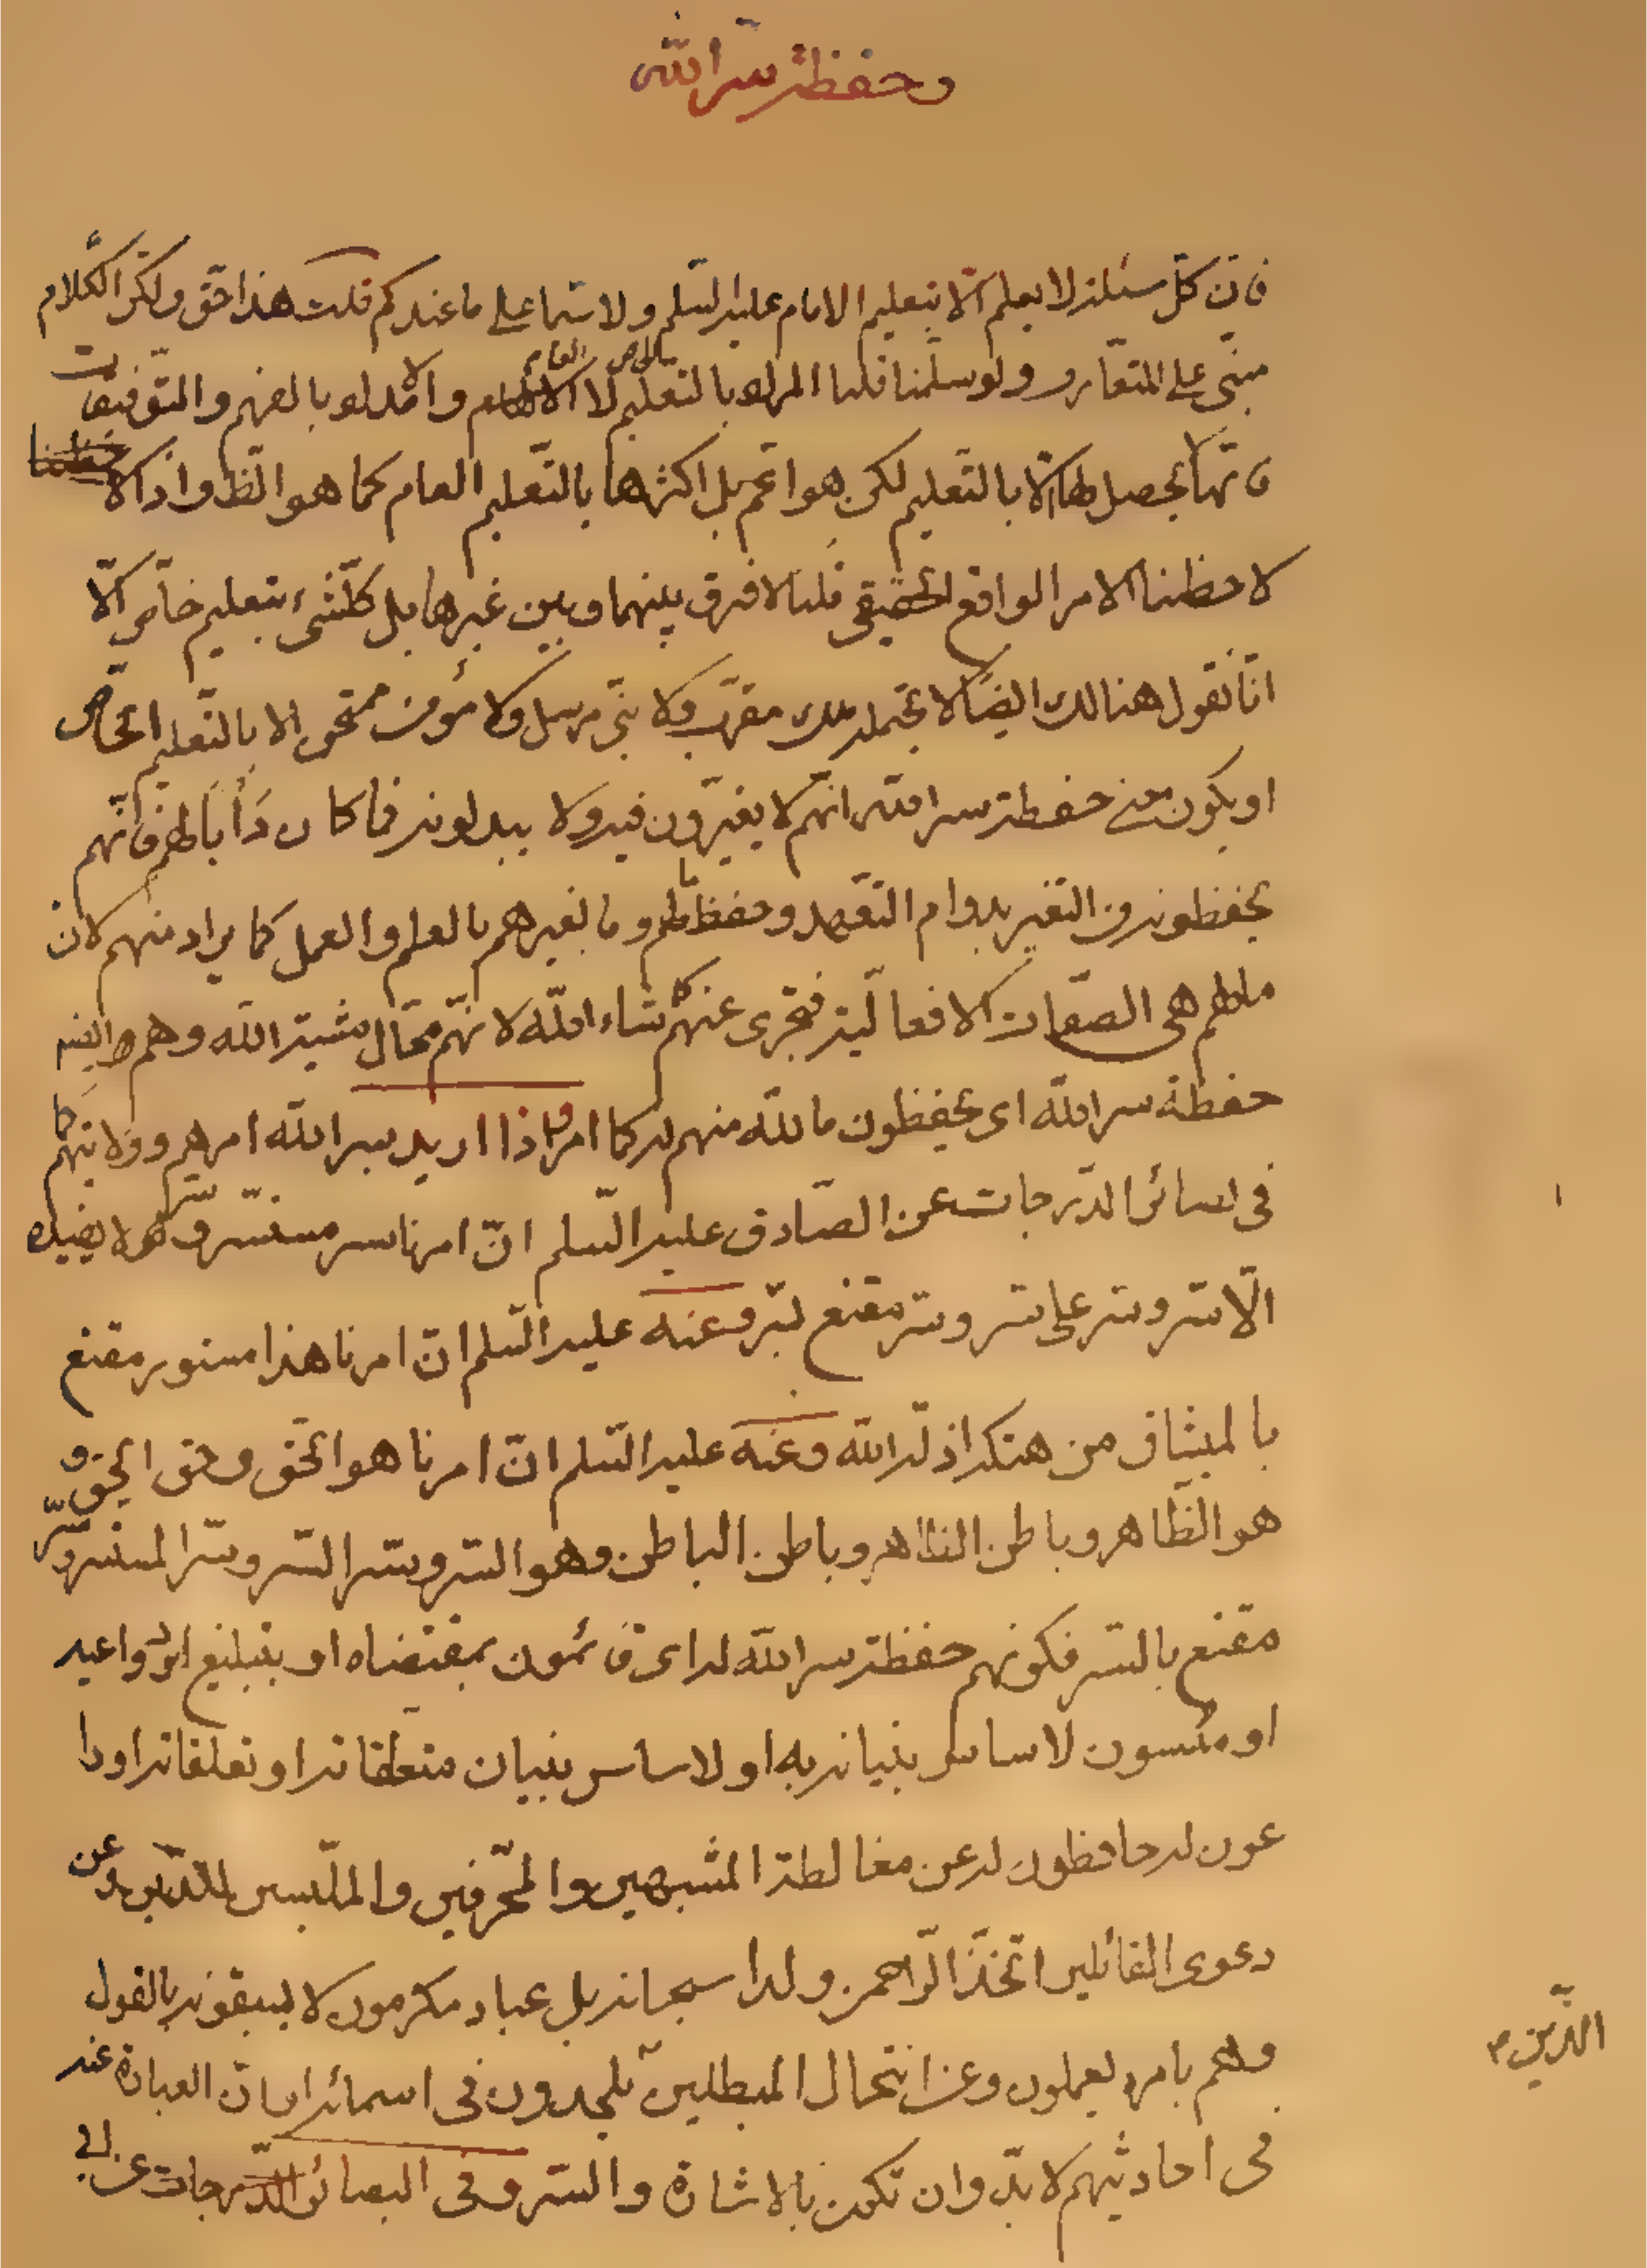 وحفظة سر الله
فان كل مسئلة لا يعلم الا بتعليم الامام عليه السلم ولا سيما على ما عندكم قلت هذا حق ولكن الكلام
مبنى على المتعارف ولو سلمنا قلنا المراد بالتعليم الخاص لا العام والامداد بالفهم والتوفيقات
فانها لا يحصل لها الا بالتعليم لكن هو اعم بل اكثرها بالتعليم العام كما هو الظ واذا
لاحظنا الامر الواقع الحقيقى قلنا لا فرق بينهما وبين غيرها بل كلشىء بتعليم خاص الا
انا نقول هنالك ايضا لا يحتمله ملك مقرب ولا نبى مرسل ولا مؤمن ممتحن الا بالتعليم الخاص
او يكون معنى حفظة سر الله انهم لا يغيرون فيه ولا يبدلونه فما كان دأبا لهم فانهم
يحفظونه من التغير بدوام التعهد وحفظ ما لهم وما لغيرهم بالعلم والعمل كما يراد منهم لان
ما لهم هى الصفات الافعالية فتجرى عنهم كما شاء الله لانهم محال مشية الله وهم ايضا
حفظة سر الله اى يحفظون ما لله منهم له كما امر واذا اريد بسر الله امرهم وولايتهم كما
فى بصائر الدرجات عن الصادق عليه السلم ان امرنا سر مستسر وسر لا يفيده
الا سر وسر على سر وسر مقنع بسر وعنه عليه السلم ان امرنا هذا مستور مقنع
بالميثاق من هتكه اذله الله وعنه عليه السلم ان امرنا هو الحق وحق الحق و
هو الظاهر وباطن الظاهر وباطن الباطن وهو السر وسر السر وسر المستسر وسر
مقنع بالسر فكونهم حفظة سر الله له اى قائمون بمقتضاه او بتبليغ اوامره ودواعيه
او مؤسسون لاساس بنيانه به او لاساس بنيان متعلقاته او تعلقاته او دا
عون له حافظون له عن مغالطة المشبهين والمحرفين والملبسين للدين وعن
دعوى القائلين اتخذ الرحمن ولدا سبحانه بل عباد مكرمون لا يسبقونه بالقول
وهم بامره يعملون وعن انتحال المبطلين يلحدون فى اسمائه فان العبارة عنه
فى احاديثهم لا بد وان تكون بالاشارة والسر وفى البصائر الدرجات عن ابى
الذين